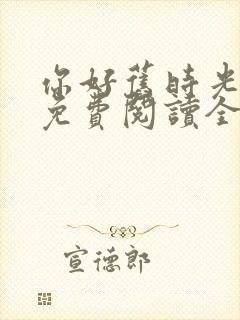 你好舊時光
免費閱讀全
宣德郎